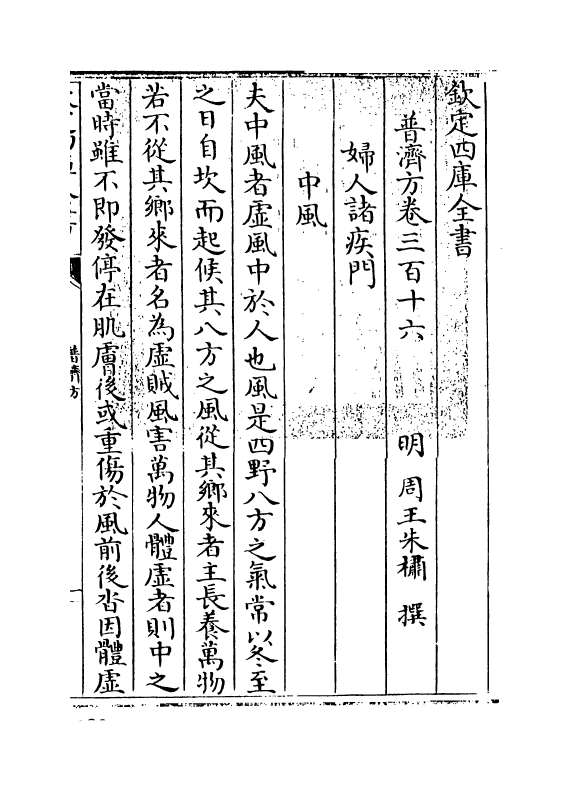 欽定四庫全書
普濟方卷三百十六　明　周王朱橚　撰
婦人諸疾門
中風
夫中風者虛風中於人也風是四野八方之氣常以冬至
之日自坎而起候其八方之風從其鄉來者主長養萬物
若不從其鄉來者名為虛賊風害萬物人體虛者則中之
當時雖不即發停在肌膚後或重傷於風前後沓因體虛
普濟方
一